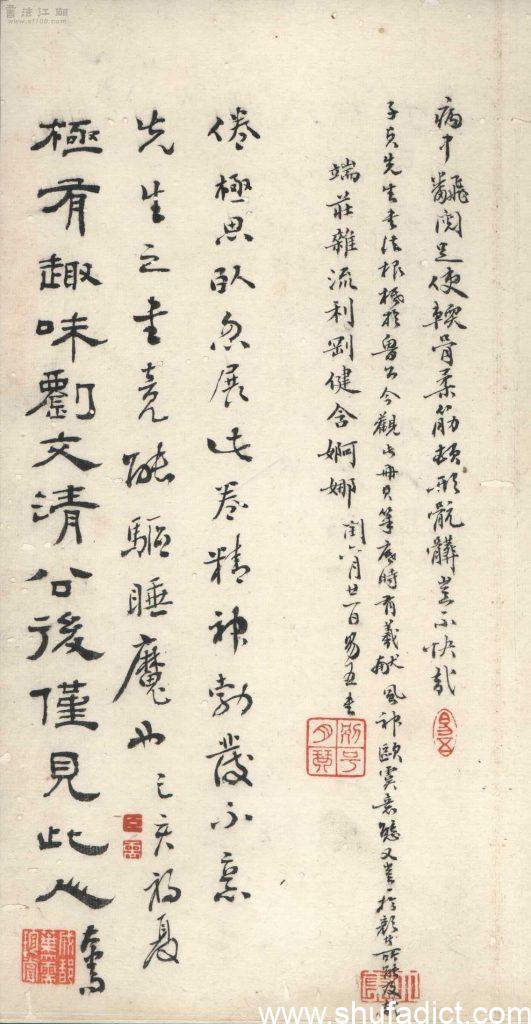 病中翻閱足使輭骨柔筋頓形骯髒豈不快哉
子貞先生書法根柢於魯公今觀此冊其筆底時有羲獻風神歐虞意態又豈一於顏者所能及哉
端莊雜流利剛健含婀娜 閏六月廿一日
倦極思臥忽展此卷精神勃發不禀
先生之書竟能驅睡魔也 己亥初夏
極有趣味劉文清公後僅見此人
書法江湖
www.sf108.com
www.shufadict.com